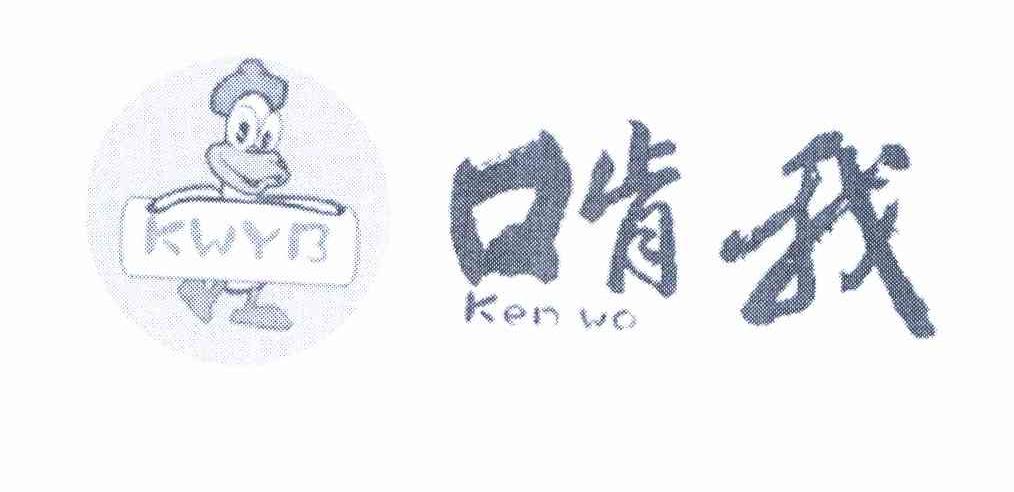 KWYB
啃我
Ken wo